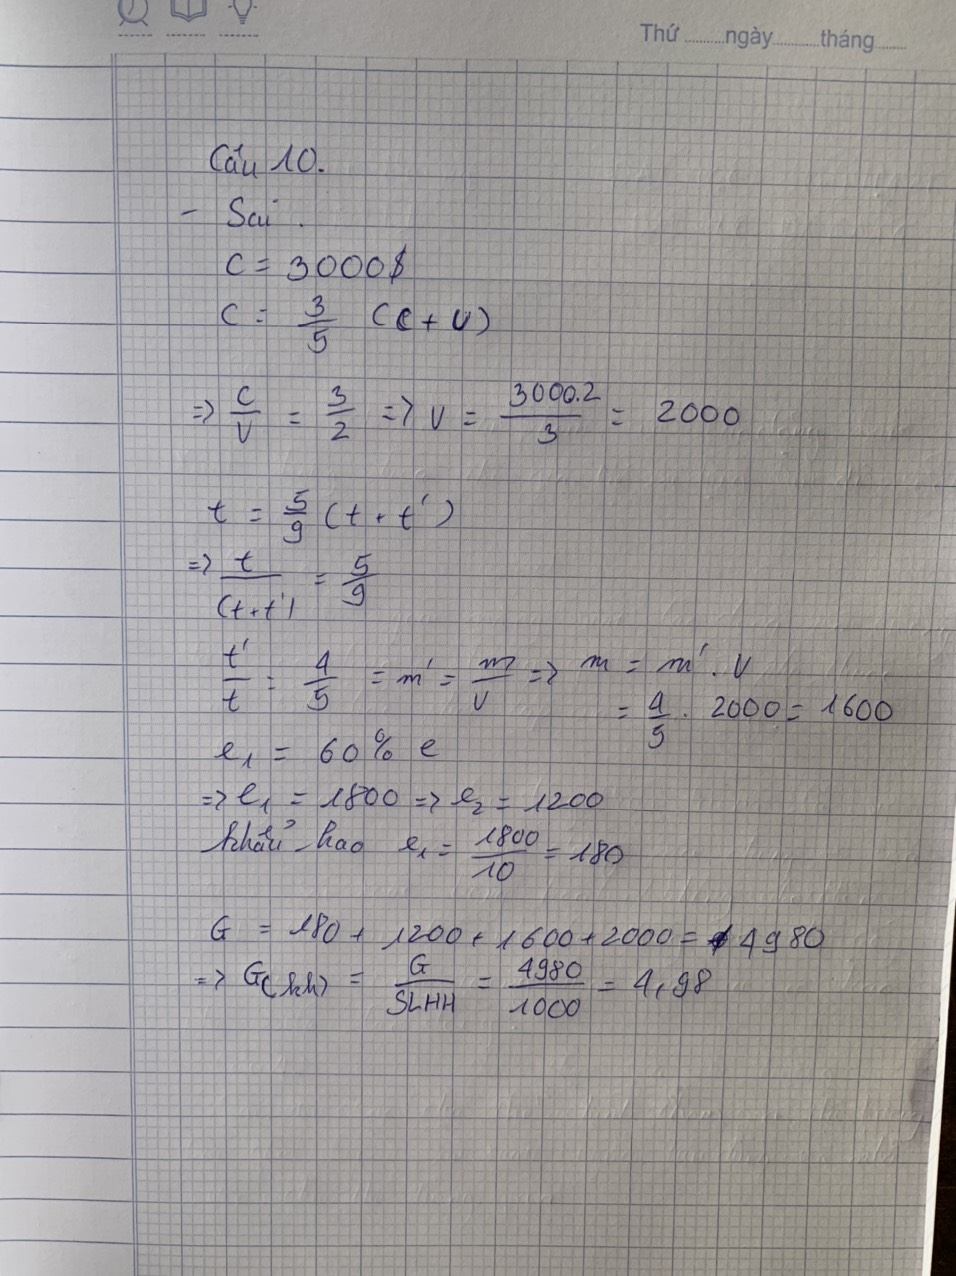 Thứ ........ngày..........tháng.......
Câu 10.
- Sai.
C = 3000$
C = 3/5 (C + V)
=> C/V = 3/2 => V = 3000.2/3 = 2000
t = 5/9 (t + t')
=> t/(t+t') = 5/9
t'/t = 4/5 = m' = m/V => m = m'. V
= 4/5 . 2000 = 1600
c₁ = 60% c
=> c₁ = 1800 => c₂ = 1200
khấu hao c₁ = 1800/10 = 180
G = 180 + 1200 + 1600 + 2000 = 4980
=> G(hh) = G/SLHH = 4980/1000 = 4,98